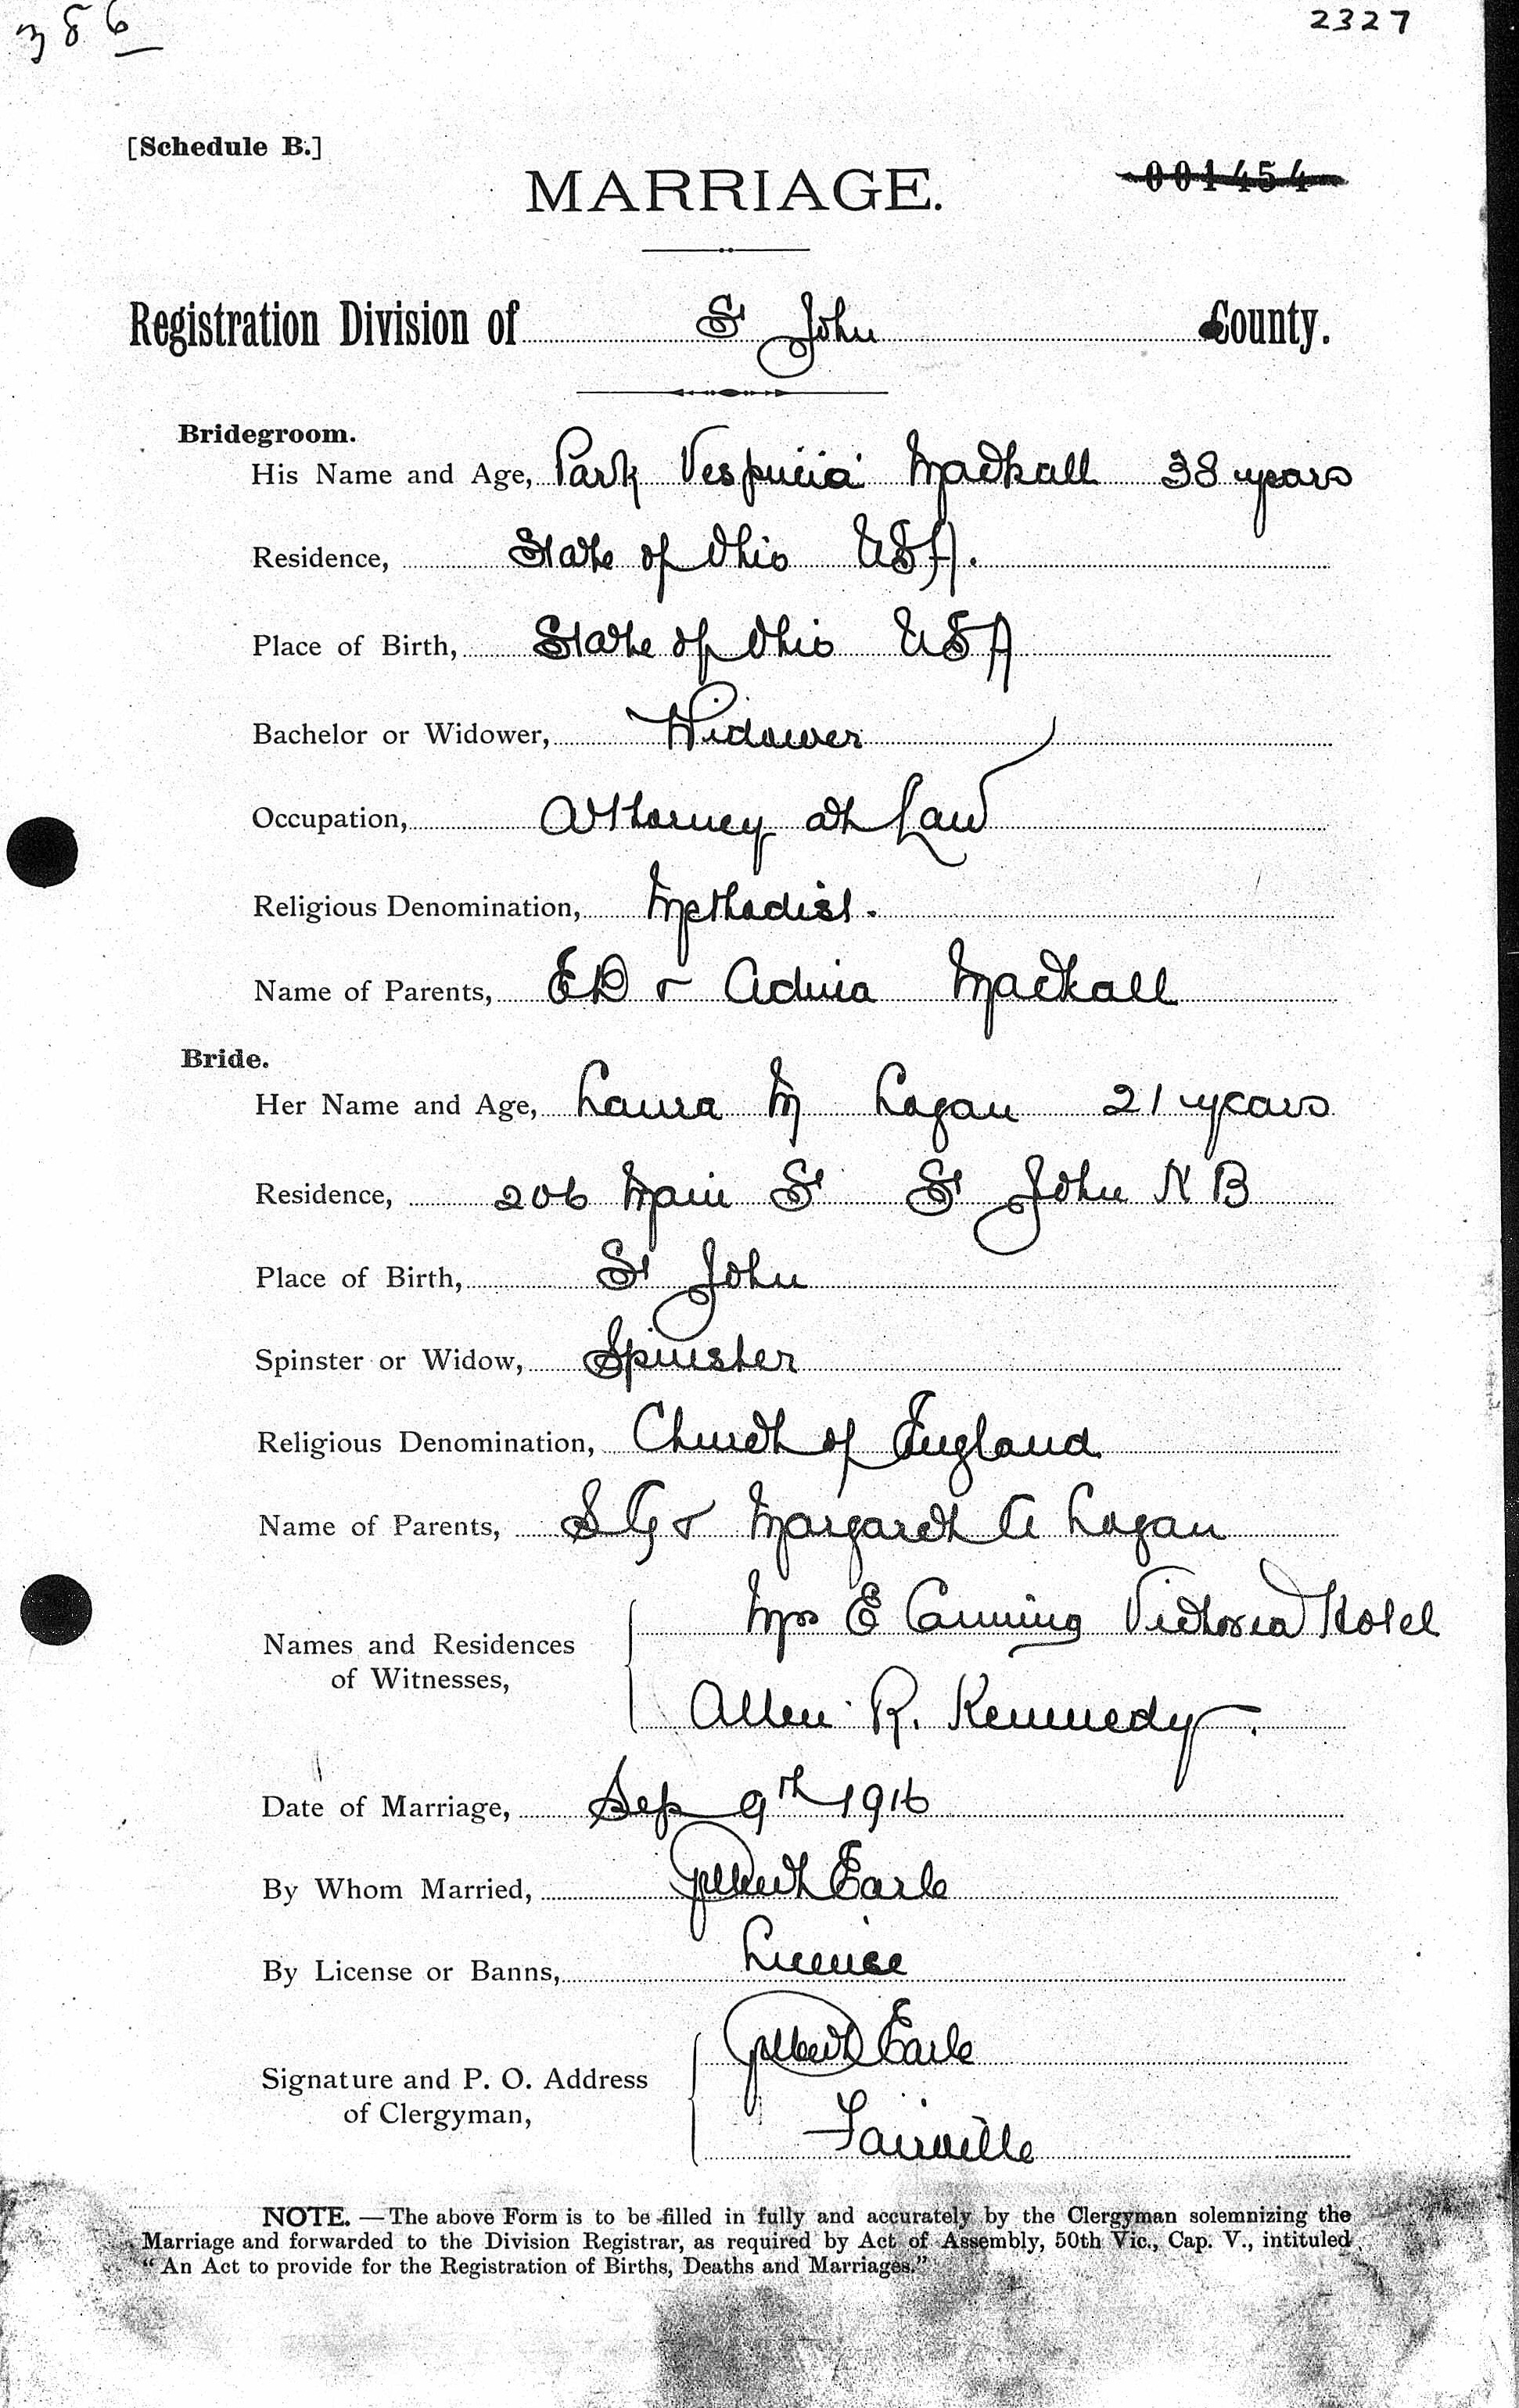 386
2327
[Schedule B.]
MARRIAGE.
001454
Registration Division of St John County.
Bridegroom.
His Name and Age, Park Mackall 38 years
Residence, State of Ohio USA.
Place of Birth, State of Ohio USA
Bachelor or Widower, Widower
Occupation, Attorney at Law
Religious Denomination, Methodist.
Name of Parents, ED & Mackall
Bride.
Her Name and Age, Laura M Logan 21 years
Residence, 206 Main St St John N B
Place of Birth, St John
Spinster or Widow, Spinster
Religious Denomination, Church of England
Name of Parents, S G & Margaret A Logan
Mrs E Canning Victoria Hotel
Names and Residences
of Witnesses,
Allen R. Kennedy.
Date of Marriage, Sep 9th 1916
By Whom Married, Gilbert Earle
By License or Banns, License
Gilbert Earle
Signature and P. O. Address
of Clergyman,
Fairville
NOTE. — The above Form is to be filled in fully and accurately by the Clergyman solemnizing the
Marriage and forwarded to the Division Registrar, as required by Act of Assembly, 50th Vic., Cap. V., intituled
"An Act to provide for the Registration of Births, Deaths and Marriages."